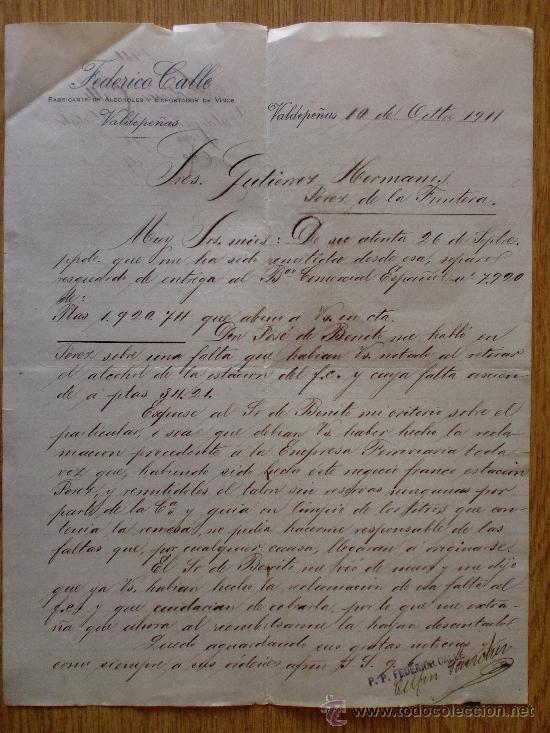 Federico Calle
Fabricante de Alcoholes y Exportador de Vinos
Valdepeñas
Valdepeñas 10 de Octbre 1911
Sres. Gutierrez Hermanos
Jerez de la Frontera.
Muy Srs. mios: De su atenta 26 de Sepbre.
ppdo. que me ha sido remitido desde esa, separé
resguardo de entrega al Bco Comercial Español nº 7.920
de:
Ptas 1.920,74 que abono a Vs. en cta.
Don José de Benito me habló en
Jerez sobre una falta que habian Vs. notado al retirar
el alcohol de la estacion del f.c. y cuya falta ascien-
de a ptas 311.21.
Expuse al Sr de Benito mi criterio sobre el
particular, o sea que debian Vs. haber hecho la recla-
macion precedente a la Empresa Ferroviaria toda
vez que, habiendo sido hecho este negocio franco estacion
Jerez, y remitidoles el talon sin reservas ningunas por
parte de la Cª y guia en limpio de los litros que con-
tenia la remesa, no podia hacerme responsable de las
faltas que, por cualquier causa, llegáran á originarse.
El Sr de Benito me dijo
que ya Vs. habian hecho la reclamacion de esa falta al
f.c. y que cuidarian de cobrarla, por lo que me extra-
ña que ahora al reembolsarme la hayan descontado
Quedo aguardando sus gratas noticias
como siempre a sus ordenes afmo S. S. q.
P. P. FEDERICO CALLE
todocoleccion
© www.todocoleccion.net